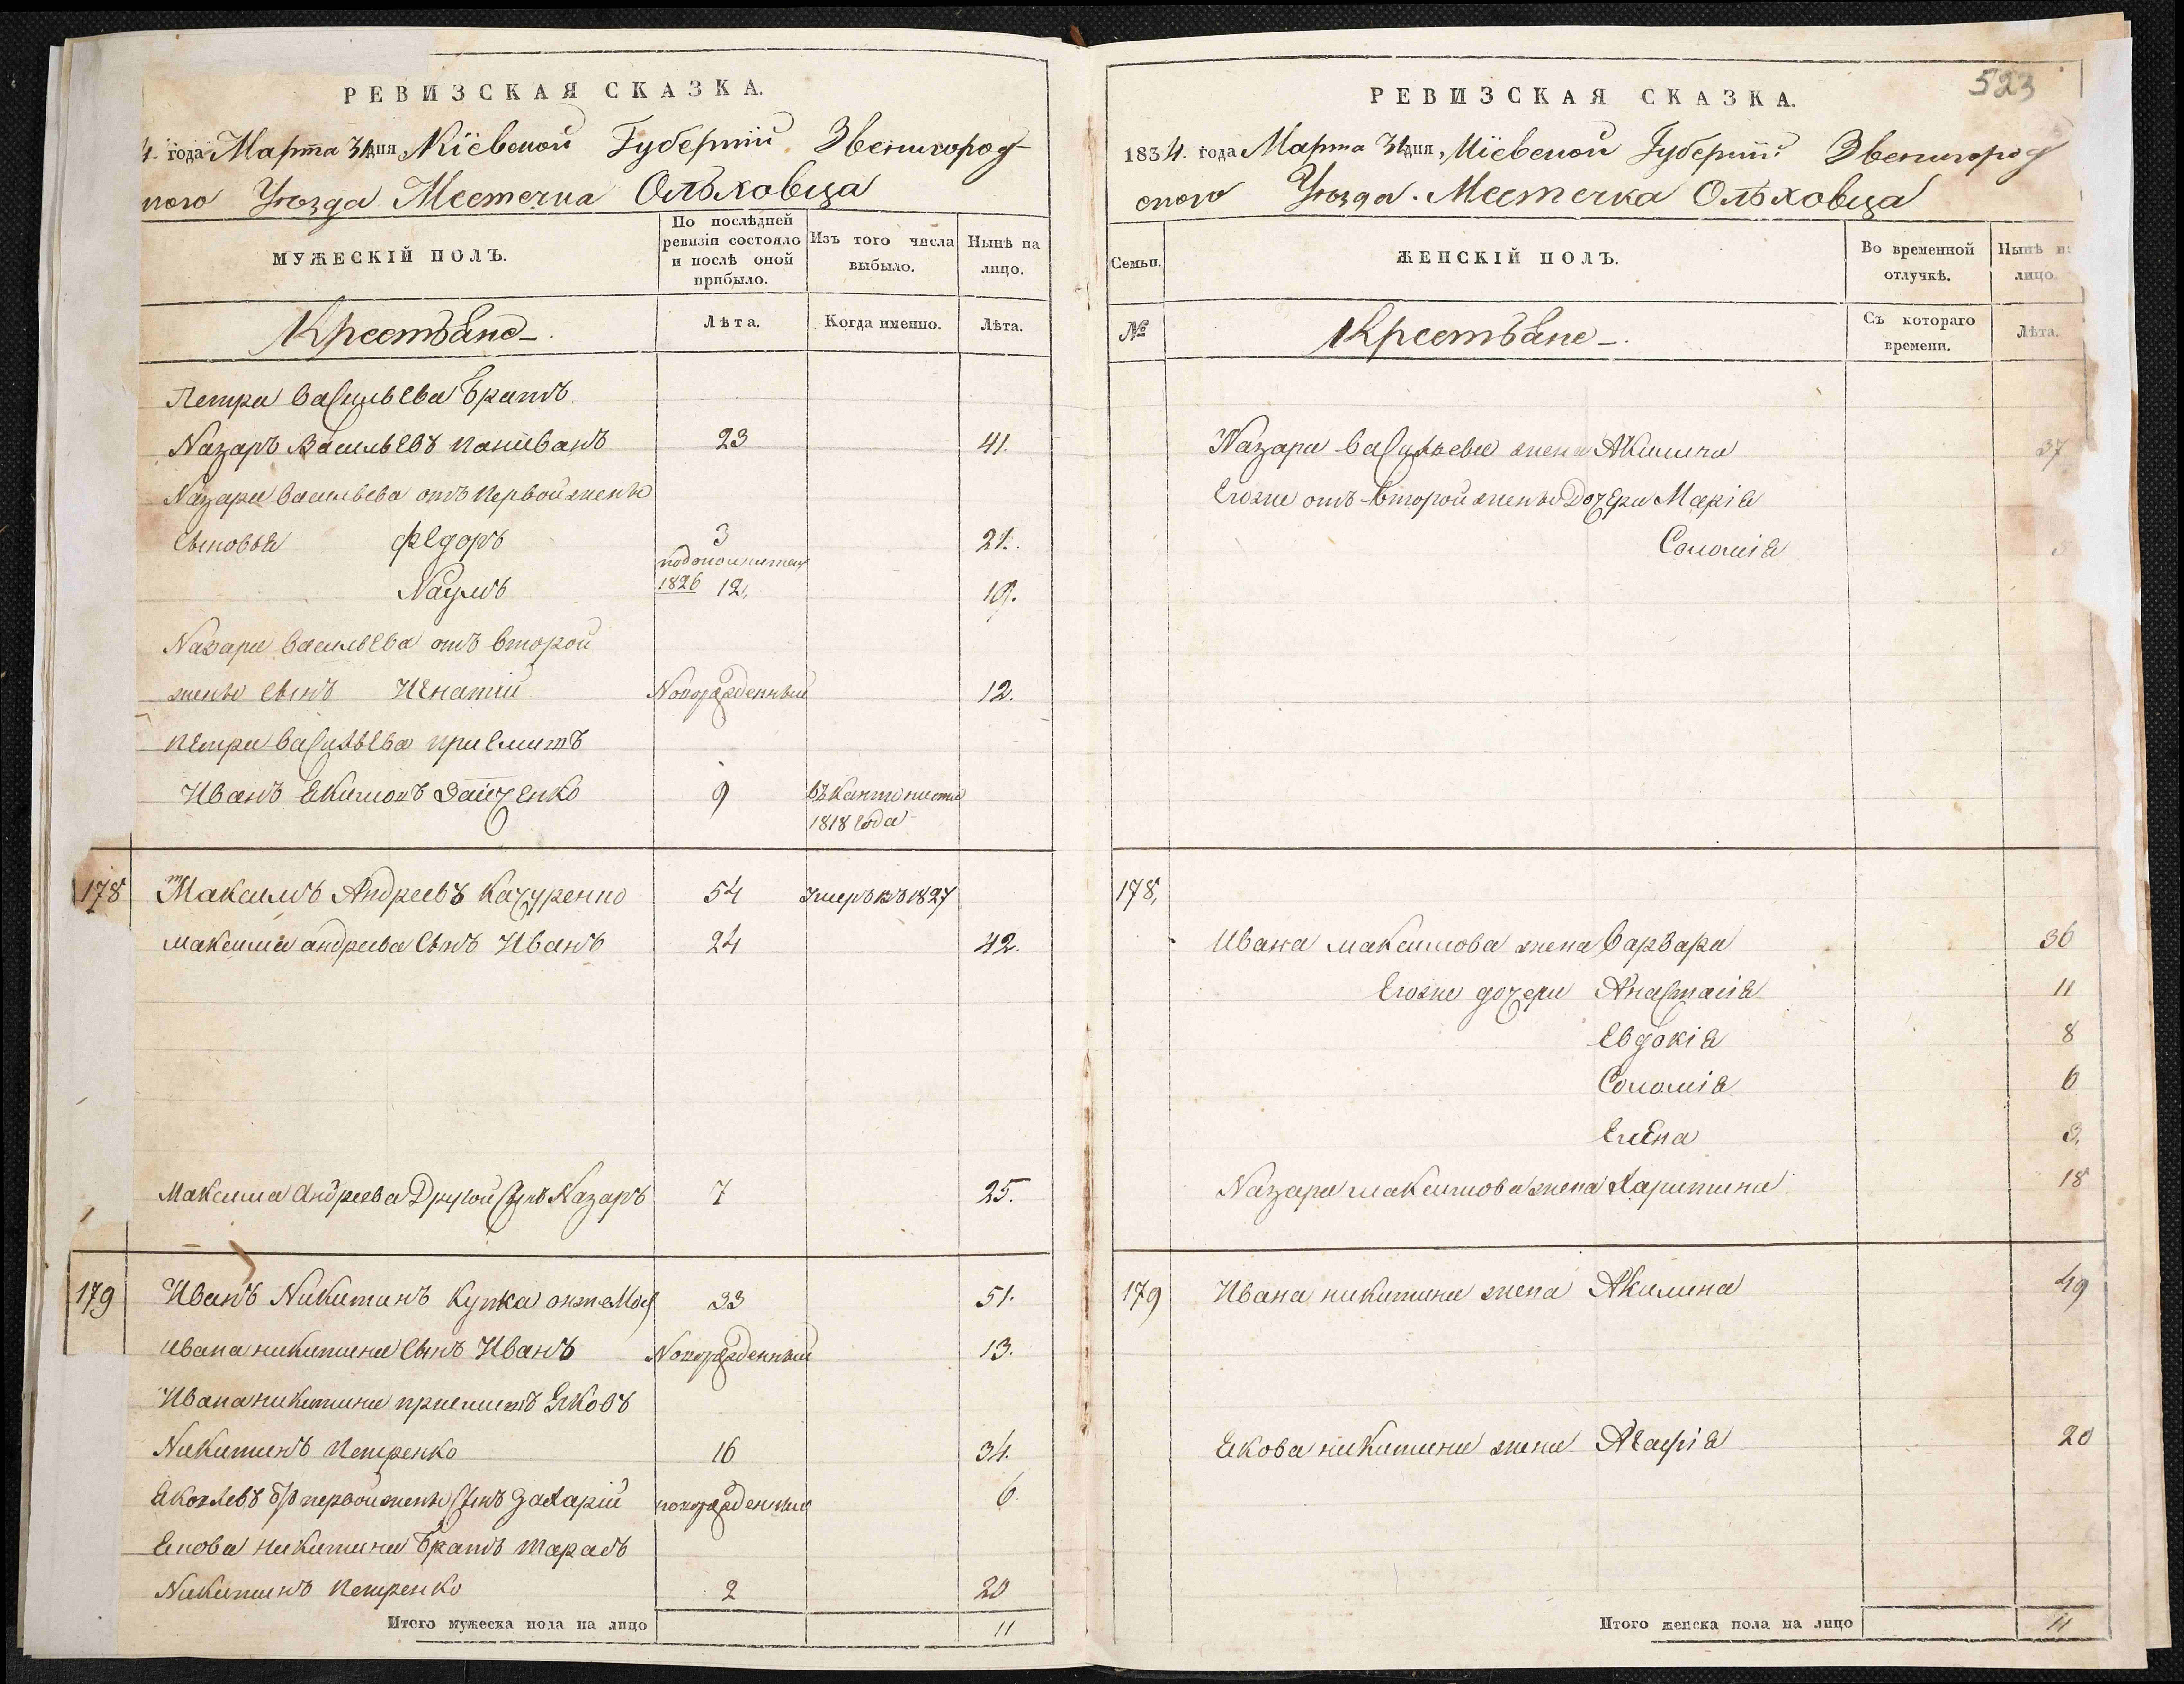 РЕВИЗСКАЯ СКАЗКА.
4. года Марта 31 дня Кіевской Губерніи Звенигород
ского Уѣзда Местечка Ольховца
МУЖЕСКІЙ ПОЛЪ.
По послѣдней ревизіи состояло и послѣ оной прибыло.
Изъ того числа выбыло.
Нынѣ на лицо.
Крестьяне
Лѣта.
Когда именно.
Лѣта.
Петра Васильева братъ
Назаръ Васильевъ 23 41.
Назара Васильева отъ первой жены
сыновья Федоръ 3 21.
Наумъ 1826 12. 19.
Назара Васильева отъ второй
жены сынъ Игнатій Новорожденный 12.
Петра Васильева приемишъ
Иванъ Екимовъ Зайченко 9 въ кантонисты 1818 года
178 Максимъ Андреевъ Качуренко 54 Умеръ въ 1827
Максима Андреева сынъ Иванъ 24 42.
Максима Андреева Другой сынъ Назаръ 7 25.
179 Иванъ Никитинъ онже 33 51.
Ивана Никитина сынъ Иванъ Новорожденный 13.
Ивана Никитина приемишъ Яковъ
Никитинъ Петренко 16 34.
Яковлевъ первой жены сынъ Захарій новорожденный 6.
Якова Никитина братъ Тарасъ
Никитинъ Петренко 2 20
Итого мужеска пола на лицо 11
523
РЕВИЗСКАЯ СКАЗКА.
1834. года Марта 31 дня, Кіевской Губерніи Звенигород
ского Уѣзда. Местечка Ольховца
Семьи.
ЖЕНСКІЙ ПОЛЪ.
Во временной отлучкѣ.
Нынѣ на лицо.
№
Крестьяне
Съ котораго времени.
Лѣта.
Назара Васильева жена Акилина 37
Егоже отъ второй жены Дочери Марія
Соломія 5
178,
Ивана Максимова жена Варвара 36
Егоже дочери Анастасія 11
Евдокія 8
Соломія 6
Елена 3.
Назара Максимова жена Харитина 18
179 Ивана Никитина жена Акилина 49
Якова Никитина жена Агафія 20
Итого женска пола на лицо 11